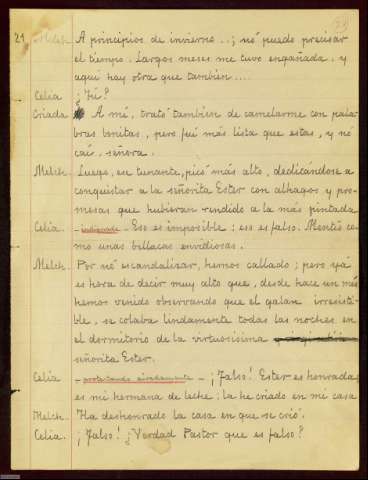 21
Melch. A principios de invierno..; nó puedo precisar
el tiempo. Largos meses me tuvo engañada. y
aqui hay otra que tambien....
Celia ¿Tú?
Criada A mi, trató tambien de camelarme con pala-
bras bonitas, pero fuí más lista que estas, y nó
caí, señora.
Melch. Luego, ese tunante, picó más alto, dedicándose a
conquistar a la señorita Ester con alhagos y pro-
mesas que hubieran rendido a la más pintada
Celia. - indignada - Eso es imposible; eso es falso. Mentís co-
mo unas bellacas envidiosas.
Melch. Por nó escandalizar, hemos callado; pero yá
es hora de decir muy alto que, desde hace un més
hemos venido observando que el galan irresisti-
ble, se colaba lindamente todas las noches en
el dormitorio de la virtuosisima
señorita Ester.
Celia - protestando airadamente - ¡Falso! Ester es honrada;
es mi hermana de leche; la he criado en mi casa
Melch. Ha deshonrado la casa en que se crió.
Celia. ¡Falso! ¿Verdad Pastor que es falso?